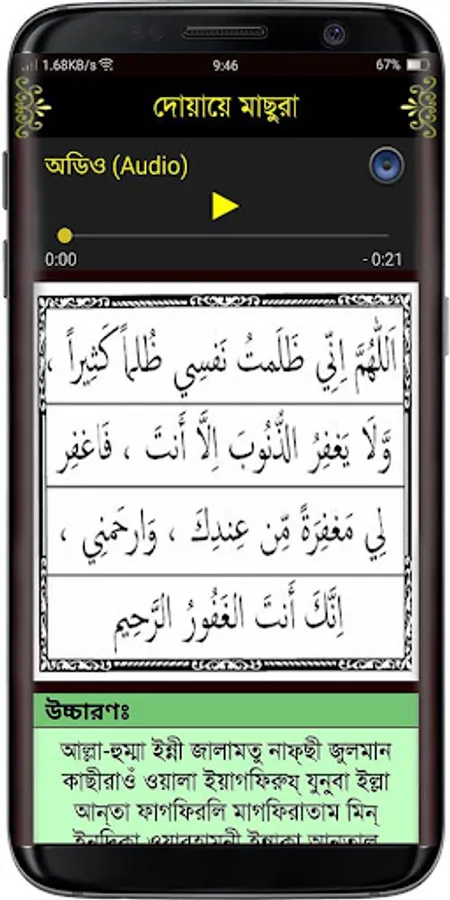 1.68KB/s 9:46 67%
দোয়ায়ে মাছুরা
অডিও (Audio)
0:00 - 0:21
اَللّٰهُمَّ اِنِّي ظَلَمتُ نَفسِي ظُلماً كَثِيراً ،
وَّلَا يَغفِرُ الذُّنُوبَ اِلَّا أَنتَ ، فَاغفِر
لِي مَغفِرَةً مِّن عِندِكَ ، وَارحَمنِي ،
اِنَّكَ أَنتَ الغَفُورُ الرَّحِيم
উচ্চারণঃ
আল্লা-হুম্মা ইন্নী জালামতু নাফ্ছী জুলমান
কাছীরাওঁ ওয়ালা ইয়াগফিরুয্ যুনুবা ইল্লা
আন্তা ফাগফিরলি মাগফিরাতাম মিন্
ইনদিকা ওয়ারহামনী ইন্নাকা আনতাল